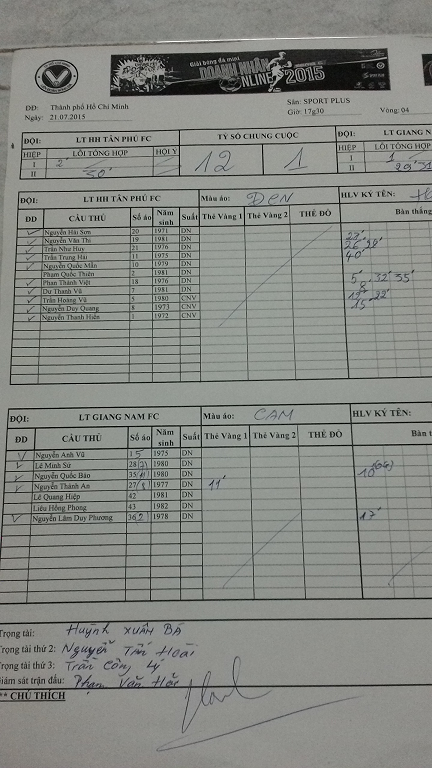 Giải bóng đá mini
DOANH NHÂN
ONLINE 2015
ĐĐ: Thành phố Hồ Chí Minh Sân: SPORT PLUS
Ngày: 21.07.2015 Giờ: 17g30 Vòng: 04
ĐỘI: LT HH TÂN PHÚ FC TỶ SỐ CHUNG CUỘC ĐỘI: LT GIANG N
HIỆP LỖI TỔNG HỢP HỘI Ý 12 1 HIỆP LỖI TỔNG HỢP
I 2' I 1
II 30' II
ĐỘI: LT HH TÂN PHÚ FC Màu áo: ĐEN HLV KÝ TÊN:
ĐD CẦU THỦ Số áo Năm sinh Suất Thẻ Vàng 1 Thẻ Vàng 2 THẺ ĐỎ Bàn thắng
Nguyễn Hải Sơn 20 1971 DN
Nguyễn Văn Thi 19 1981 DN 27'
Trần Như Huy 21 1976 DN 26' 29'
Trần Trung Hải 11 1975 DN 40'
Nguyễn Quốc Mẫn 10 1979 DN
Phạm Quốc Thiên 2 1981 DN
Phan Thành Việt 18 1976 DN 5' 32' 35'
Dư Thanh Vũ 7 1981 DN 8'
Trần Hoàng Vũ 5 1980 CNV 22'
Nguyễn Duy Quang 8 1973 CNV 15'
Nguyễn Thanh Hiền 1 1972 CNV
ĐỘI: LT GIANG NAM FC Màu áo: CAM HLV KÝ TÊN:
ĐD CẦU THỦ Số áo Năm sinh Suất Thẻ Vàng 1 Thẻ Vàng 2 THẺ ĐỎ Bàn t
Nguyễn Anh Vũ 15 1975 DN
Lê Minh Sử 28 1980 DN
Nguyễn Quốc Bảo 35 1980 DN 10'
Nguyễn Thành An 27 1976 DN 11'
Lê Quang Hiệp 42 1981 DN
Liêu Hồng Phong 43 1982 DN
Nguyễn Lâm Duy Phương 36 1978 DN 17'
Trọng tài: Huỳnh XUÂN BÁ
Trọng tài thứ 2: Nguyễn TẤN HOÀI
Trọng tài thứ 3: Trần Công Lý
Giám sát trận đấu: Phạm Văn
** CHÚ THÍCH